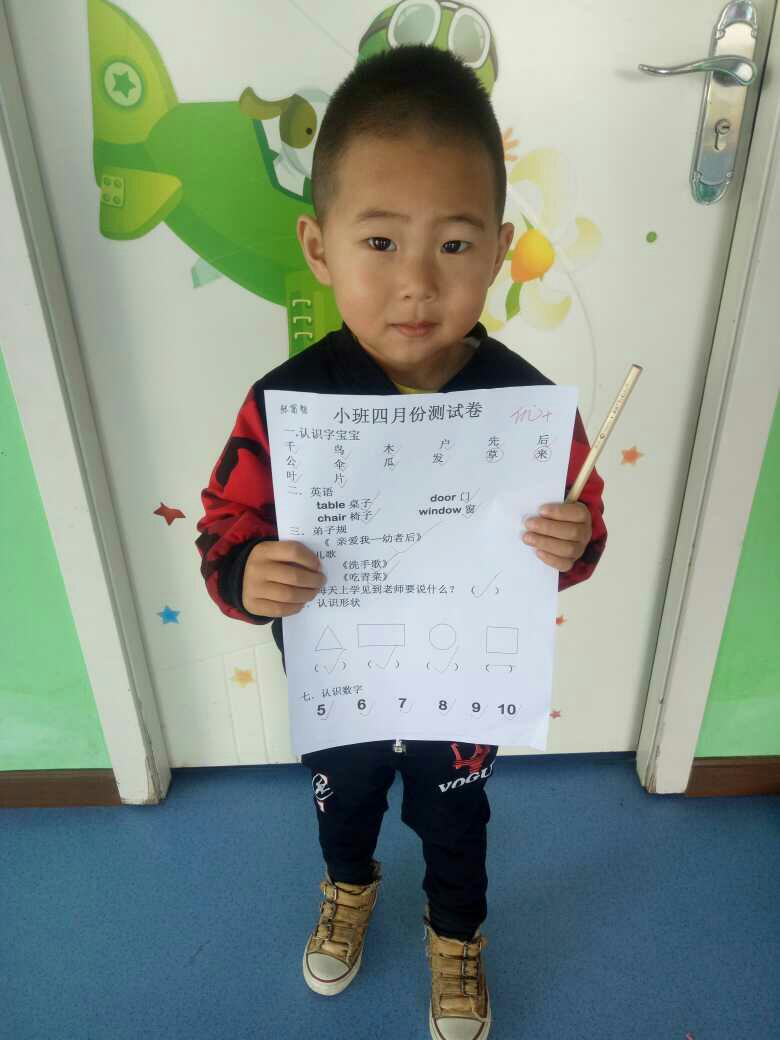 小班四月份测试卷
优+
一.认识字宝宝
千 鸟 木 户 先 后
公 伞 瓜 发 草 来
叶 片
二. 英语
table 桌子 door 门
chair 椅子 window 窗
三. 弟子规
《 亲爱我一幼者后》
儿歌
《洗手歌》
《吃青菜》
每天上学见到老师要说什么？ （ ）
. 认识形状
（ ） （ ） （ ） （ ）
七. 认识数字
5 6 7 8 9 10
VOGUE